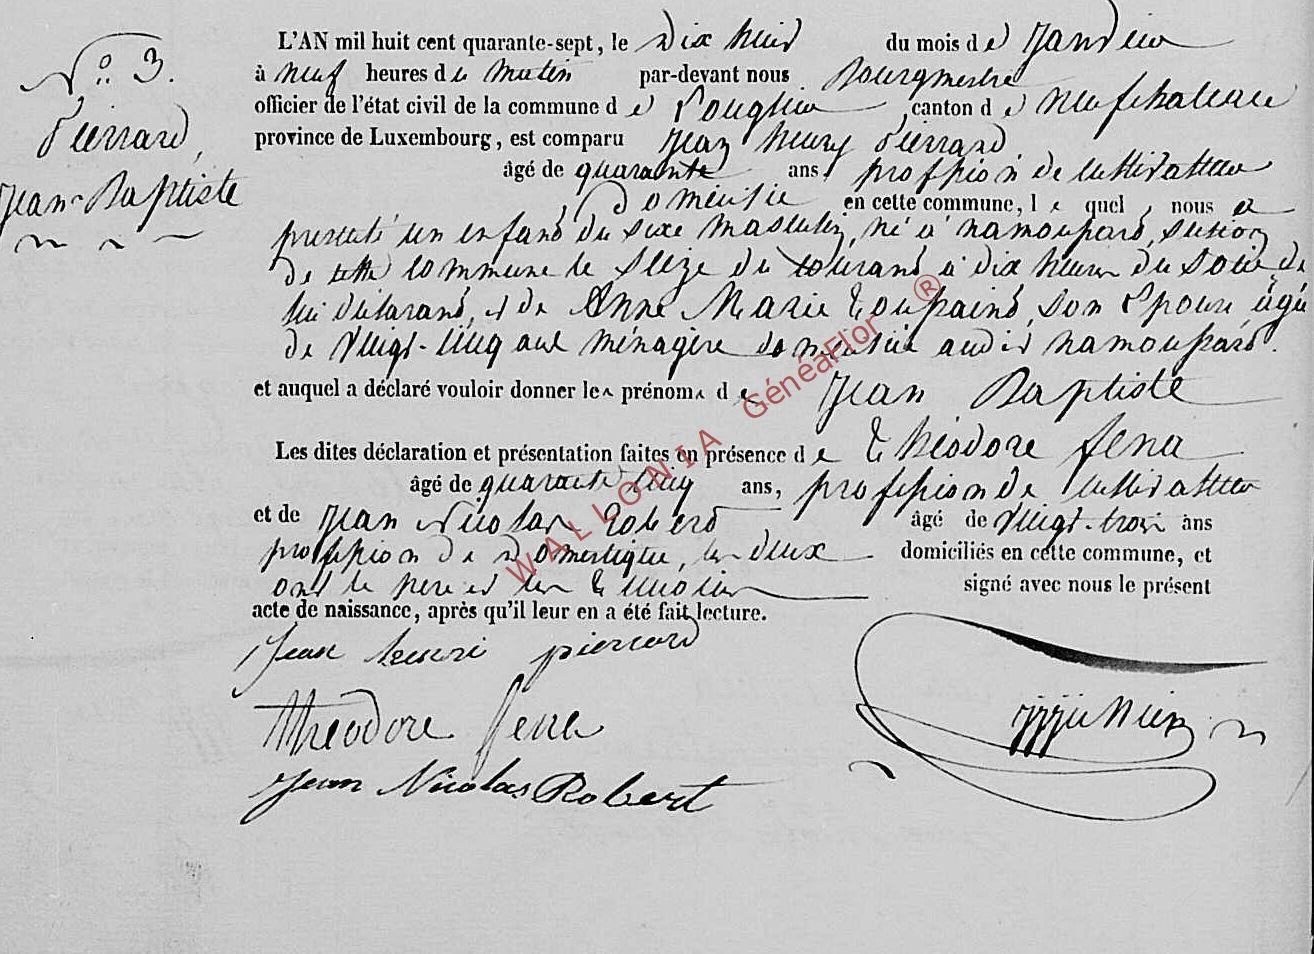 N.o 3.
Pierrard,
Jean-Baptiste
L'AN mil huit cent quarante-sept, le dix huit du mois de Janvier
à neuf heures de matin par-devant nous Bourgmestre
officier de l'état civil de la commune de Longlier canton de neufchateau
province de Luxembourg, est comparu Jean henry Pierrard,
âgé de quarante ans, profession de cultivateur
Domicilié en cette commune, le quel nous a
presenté un enfant du sexe masculin, né à namoussart, section
de cette commune le seize du courant à dix heures du soir, de
lui déclarant, et de Anne Marie Toussaint, son Epouse âgée
de Vingt-cinq ans ménagère domiciliée audit namoussart.
et auquel a déclaré vouloir donner les prénoms de Jean Baptiste
Les dites déclaration et présentation faites en présence de théodore fena
âgé de quarante cinq ans, profession de cultivateur
et de Jean Nicolas Robert âgé de Vingt-trois ans
profession de domestique, les deux domiciliés en cette commune, et
ont le pere et les témoins signé avec nous le présent
acte de naissance, après qu'il leur en a été fait lecture.
Jean henri pierrard
théodore fena
Jean Nicolas Robert
WALLONIA GénéaFlor ®